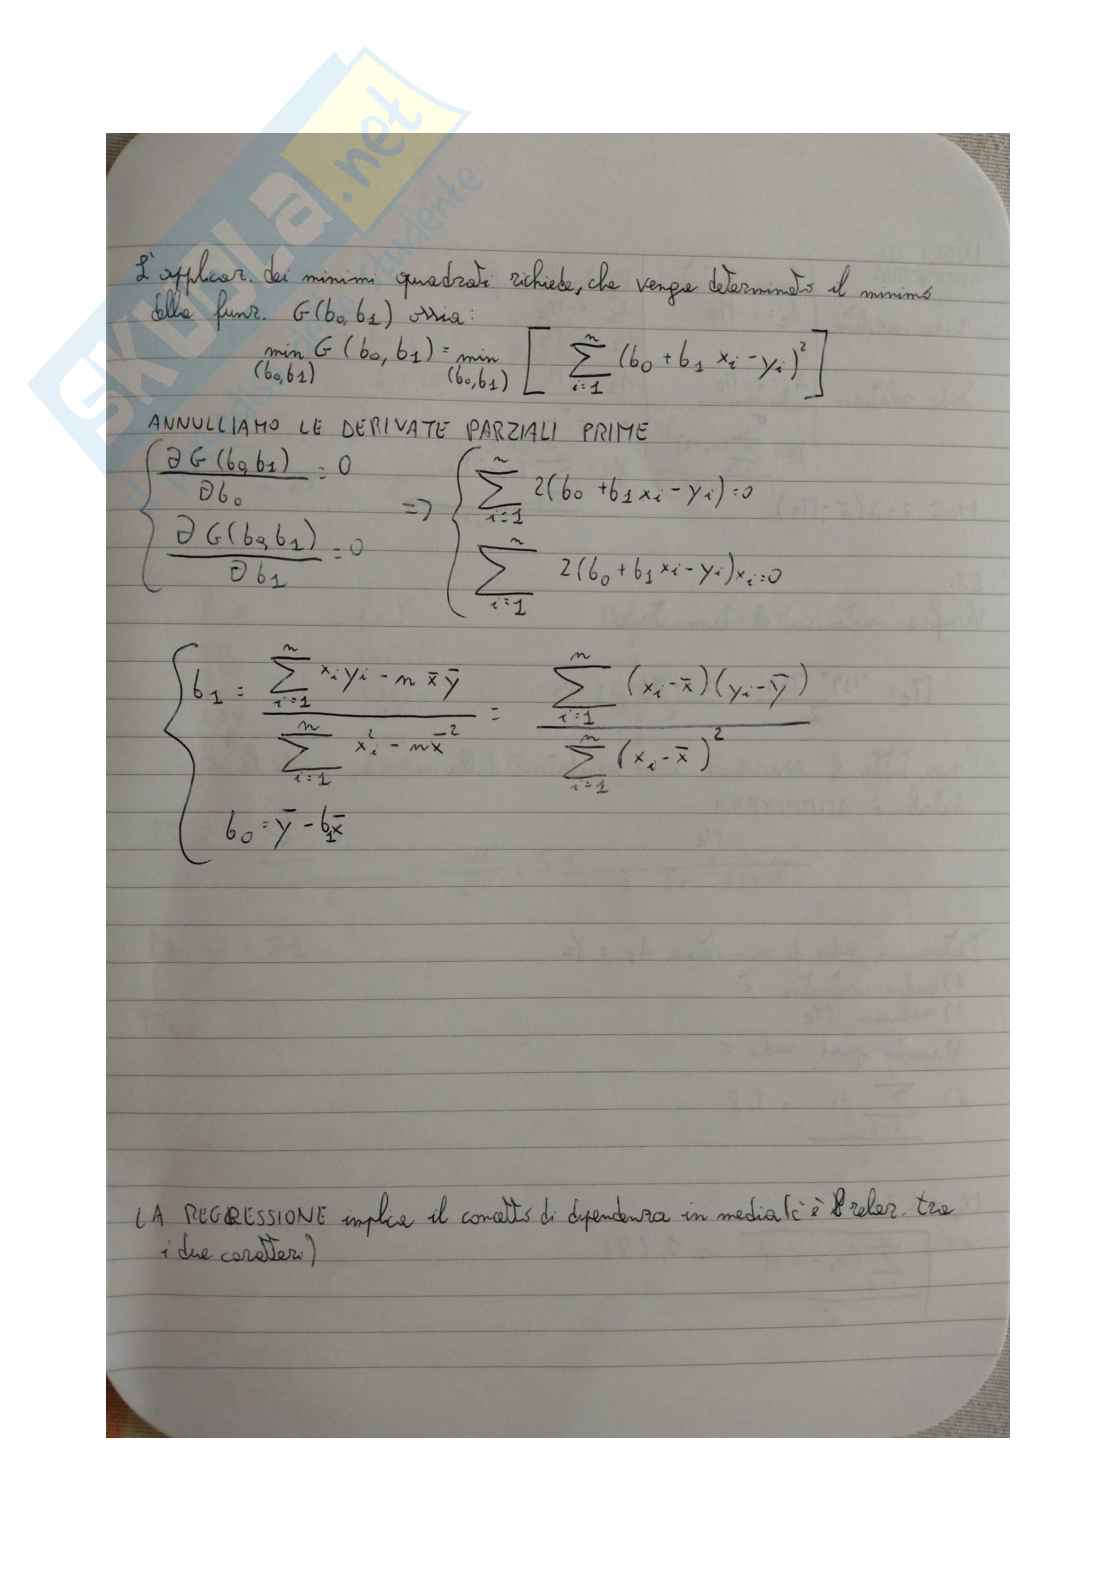 SKUOLA.net
L'applicaz. dei minimi quadrati richiede, che venga determinato il minimo
della funz. G(b₀,b₁) ossia:
min G(b₀,b₁) = min [ ∑ (b₀ + b₁ xᵢ - yᵢ)² ]
(b₀,b₁) (b₀,b₁) i=1 n
ANNULLIAMO LE DERIVATE PARZIALI PRIME
{ ∂G(b₀,b₁)/∂b₀ = 0 => { ∑ⁿᵢ₌₁ 2(b₀ + b₁xᵢ - yᵢ) = 0
∂G(b₀,b₁)/∂b₁ = 0 ∑ⁿᵢ₌₁ 2(b₀ + b₁xᵢ - yᵢ)xᵢ = 0
{ b₁ = (∑ⁿᵢ₌₁ xᵢyᵢ - n x̄ȳ) / (∑ⁿᵢ₌₁ xᵢ² - nx̄²) = (∑ⁿᵢ₌₁ (xᵢ-x̄)(yᵢ-ȳ)) / (∑ⁿᵢ₌₁ (xᵢ-x̄)²)
b₀ = ȳ - b₁x̄
LA REGRESSIONE implica il concetto di dipendenza in media (c'è relaz. tra
i due caratteri)